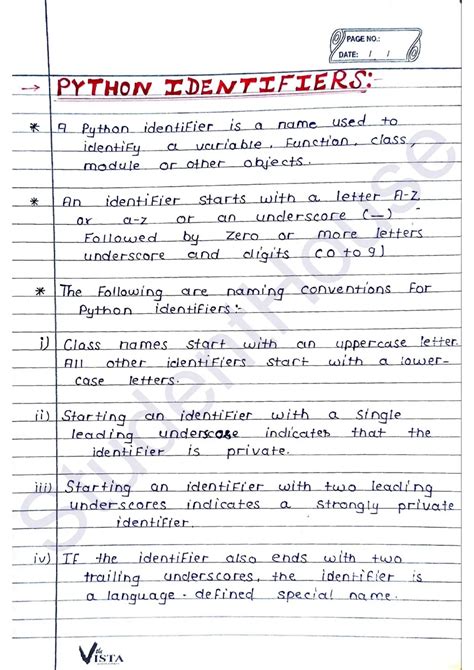 PAGE NO.:
DATE: / /
→ PYTHON IDENTIFIERS:-
* A Python identifier is a name used to
identify a variable, function, class,
module or other objects.
* An identifier starts with a letter A-Z
or a-z or an underscore (_)
followed by zero or more letters
underscore and digits (0 to 9)
* The following are naming conventions for
Python identifiers:-
i) Class names start with an uppercase letter.
All other identifiers start with a lower-
case letters.
ii) Starting an identifier with a single
leading underscore indicates that the
identifier is private.
iii) Starting an identifier with two leading
underscores indicates a strongly private
identifier.
iv) If the identifier also ends with two
trailing underscores, the identifier is
a language-defined special name.
StudentHouse
the
VISTA